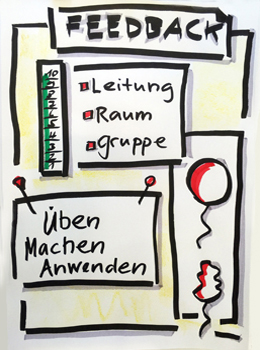 FEEDBACK
Leitung
Raum
gruppe
Üben
Machen
Anwenden